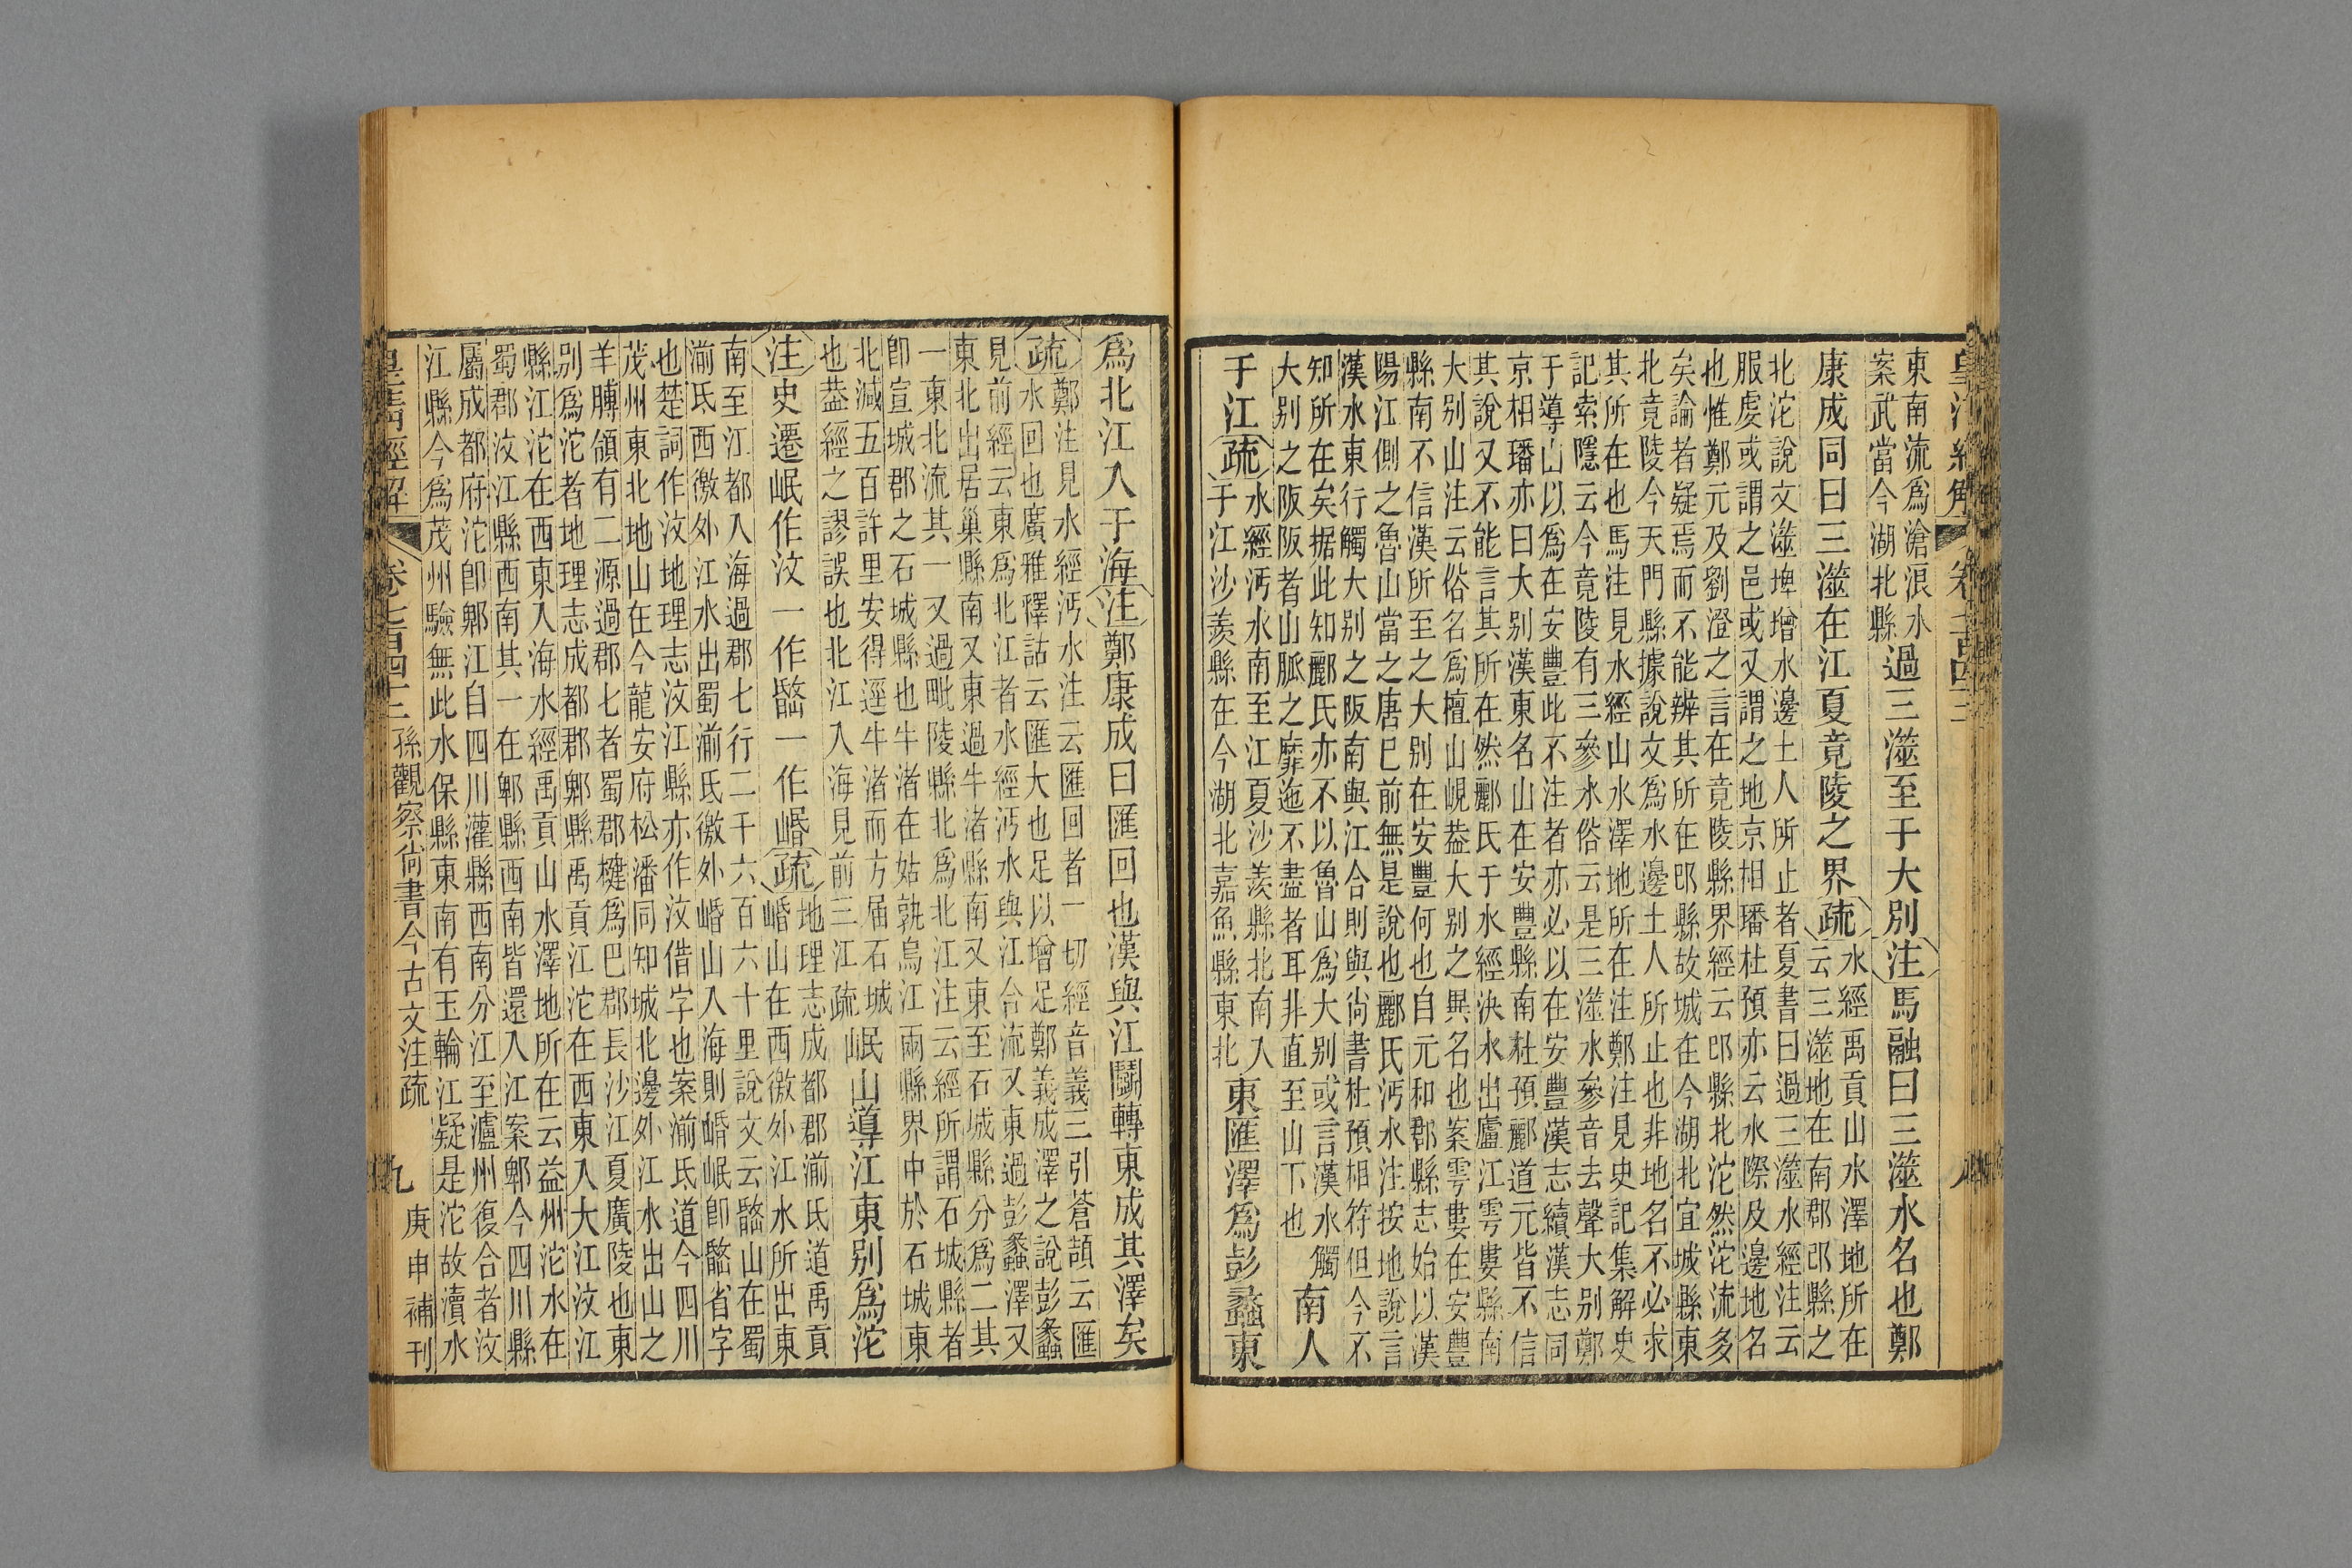 皇清經解 卷七百四十三 八
東南流爲滄浪水
案武當今湖北縣
過三澨至于大別注馬融曰三澨水名也鄭
康成同曰三澨在江夏竟陵之界疏
水經禹貢山水澤地所在
云三澨地在南郡邔縣之
北沱說文澨埤增水邊土人所止者夏書曰過三澨水經注云
服虔或謂之邑或又謂之地京相璠杜預亦云水際及邊地名
也惟鄭元及劉澄之言在竟陵縣界經云邔縣北沱然沱流多
矣論者疑焉而不能辨其所在邔縣故城在今湖北宜城縣東
北竟陵今天門縣據說文爲水邊土人所止也非地名不必求
其所在也馬注見水經山水澤地所在注鄭注見史記集解史
記索隱云今竟陵有三參水俗云是三澨水參音去聲大别鄭
于導山以爲在安豐此不注者亦必以在安豐漢志續漢志同
京相璠亦曰大别漢東名山在安豐縣南杜預酈道元皆不信
其說又不能言其所在然酈氏于水經決水出廬江雩婁縣南
大别山注云俗名爲檀山峴葢大别之異名也案雩婁在安豐
縣南不信漢所至之大别在安豐何也自元和郡縣志始以漢
陽江側之魯山當之唐已前無是說也酈氏沔水注按地說言
漢水東行觸大别之阪南與江合則與尙書杜預相符但今不
知所在矣据此知酈氏亦不以魯山爲大别或言漢水觸
大别之阪阪者山脈之靡迆不盡者耳非直至山下也
南入
于江疏
水經沔水南至江夏沙羨縣北南入
于江沙羨縣在今湖北嘉魚縣東北
東匯澤爲彭蠡東
爲北江入于海注鄭康成曰匯回也漢與江鬭轉東成其澤矣
疏
鄭注見水經沔水注云匯回者一切經音義三引蒼頡云匯
水回也廣雅釋詁云匯大也足以增足鄭義成澤之說彭蠡
見前經云東爲北江者水經沔水與江合流又東過彭蠡澤又
東北出居巢縣南又東過牛渚縣南又東至石城縣分爲二其
一東北流其一又過毗陵縣北爲北江注云經所謂石城縣者
卽宣城郡之石城縣也牛渚在姑孰烏江兩縣界中於石城東
北減五百許里安得逕牛渚而方屆石城
也葢經之謬誤也北江入海見前三江疏
岷山導江東别爲沱
注史遷岷作汶一作㟭一作崏疏
地理志成都郡湔氐道禹貢
崏山在西徼外江水所出東
南至江都入海過郡七行二千六百六十里說文云㟭山在蜀
湔氐西徼外江水出蜀湔氐徼外崏山入海則崏岷卽㟭省字
也楚詞作汶地理志汶江縣亦作汶借字也案湔氐道今四川
茂州東北地山在今龍安府松潘同知城北邊外江水出山之
羊膊領有二源過郡七者蜀郡犍爲巴郡長沙江夏廣陵也東
别爲沱者地理志成都郡郫縣禹貢江沱在西東入大江汶江
縣江沱在西東入海水經禹貢山水澤地所在云益州沱水在
蜀郡汶江縣西南其一在郫縣西南皆還入江案郫今四川縣
屬成都府沱卽郫江自四川灌縣西南分江至瀘州復合者汶
江縣今爲茂州驗無此水保縣東南有玉輪江疑是沱故瀆水
皇清經解 卷七百四十三 孫觀察尙書今古文注疏 九 庚申補刊